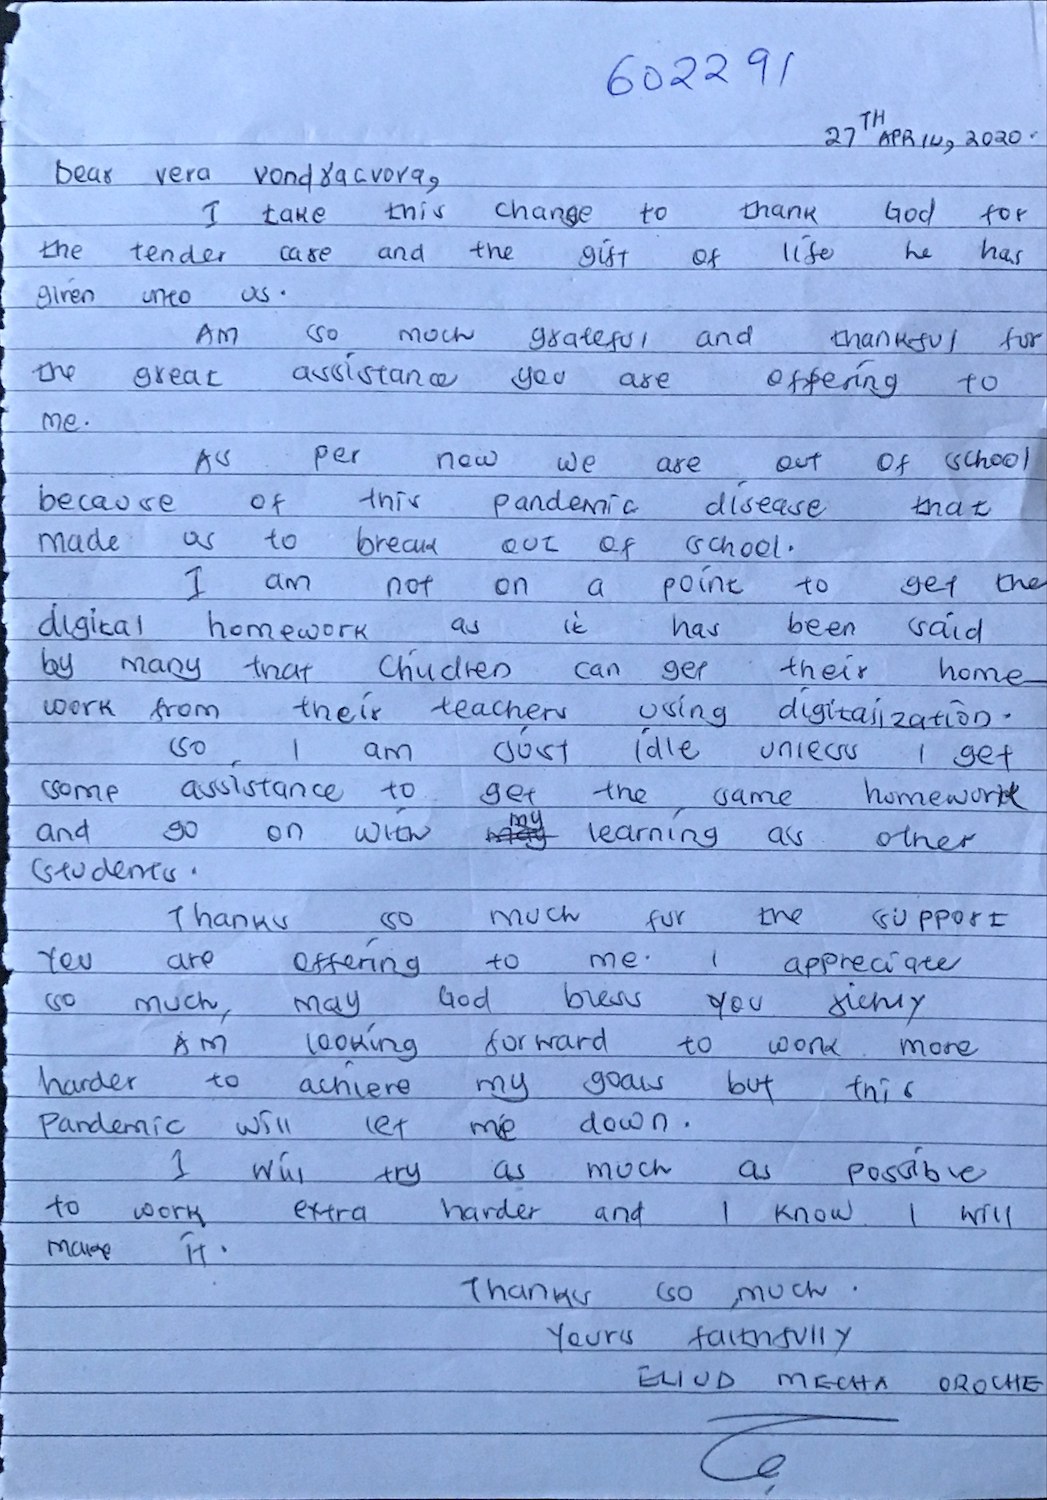 602291
27TH APRIL, 2020.
Dear vera vondracvova,
I take this change to thank God for
the tender care and the gift of life he has
given unto us.
AM so much grateful and thankful for
the great assistance you are offering to
me.
As per now we are out of school
because of this pandemic disease that
made us to break out of school.
I am not on a point to get the
digital homework as it has been said
by many that children can get their home
work from their teachers using digitalization.
So, I am just idle unless I get
some assistance to get the same homework
and go on with my learning as other
students.
Thanks so much for the support
You are offering to me. I appreciate
so much, may God bless you richly
AM looking forward to work more
harder to achieve my goals but this
Pandemic will let me down.
I will try as much as possible
to work extra harder and I know I will
make it.
Thanks so much.
Yours faithfully
ELIUD MECHA OROCHE